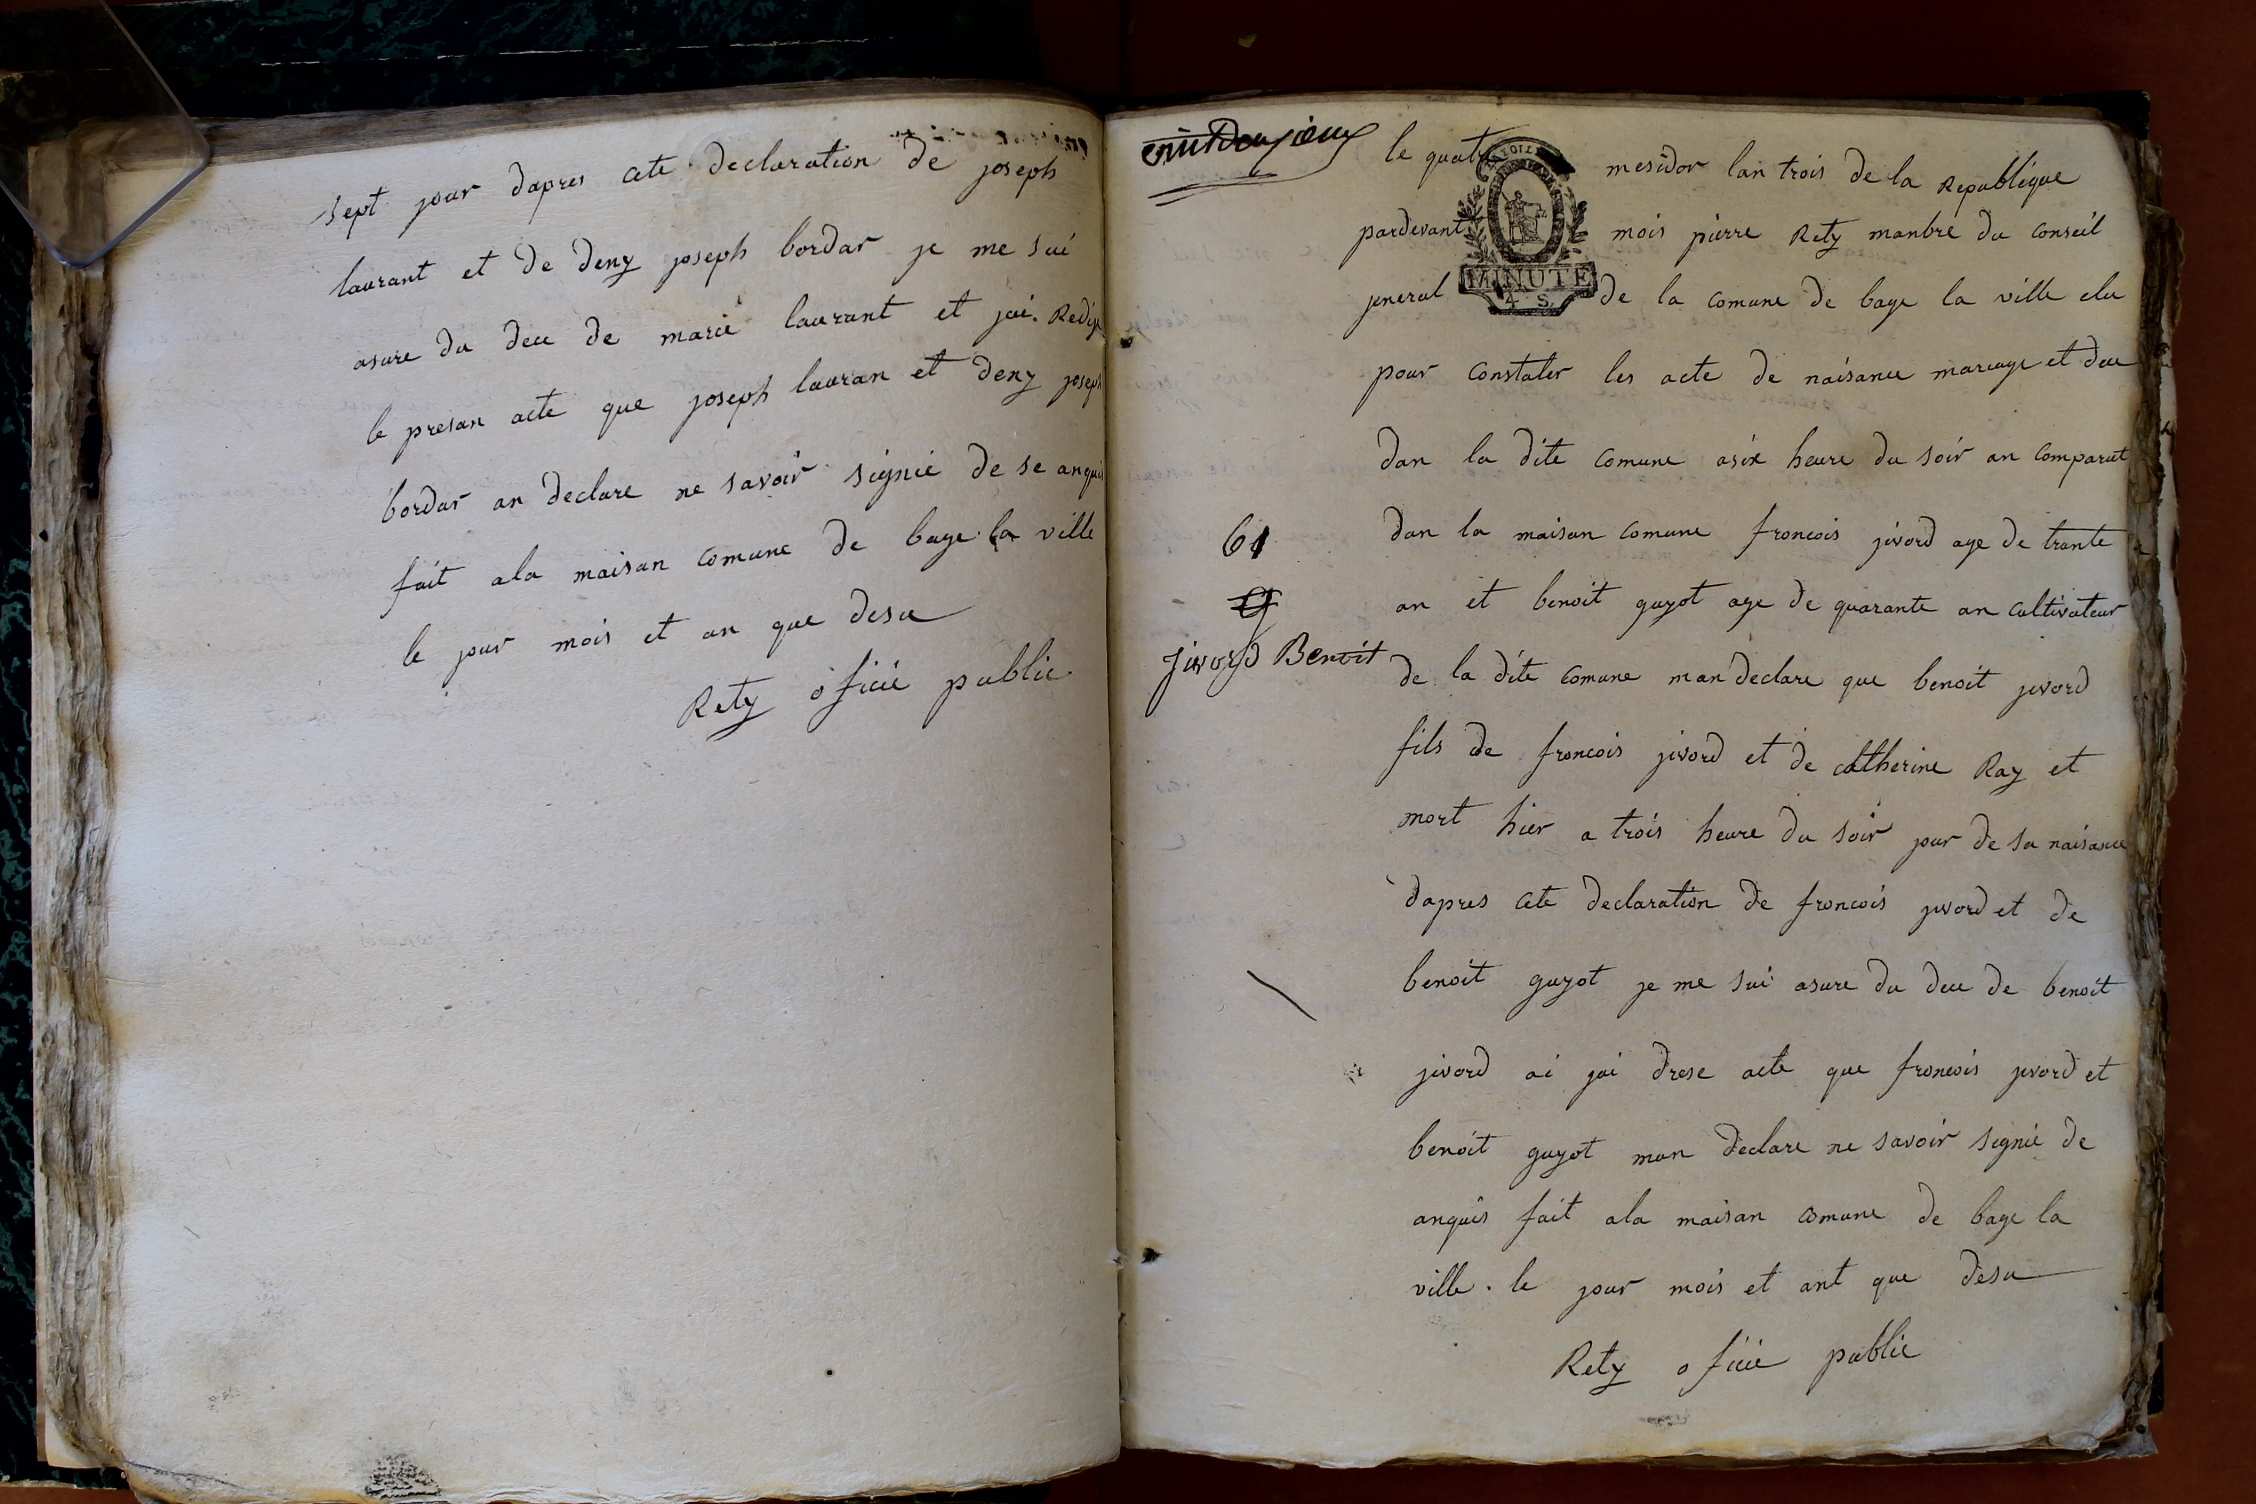 sept jour dapres cete declaration de joseph
laurant et de deny joseph bordar je me sui
asure du dece de marie laurant et jai Redige
le presan acte que joseph lauran et deny joseph
bordar an declare ne savoir signié de se anquis
fait ala maisan comune de bage la ville
le jour mois et an que desu
Rety oficié public
le quatre mesidor lan trois de la Republique
pardevant mois pierre Rety manbre du conseil
jeneral de la comune de bage la ville elu
MINUTE
4 S.
pour constater les acte de naisance mariage et dece
dan la dite comune asix heure du soir an comparut
61
dan la maisan comune francois jivord age de trante
an et benoit guyot age de quarante an cultivateur
Jivord Benoit
de la dite comune man declare que benoit jivord
fils de francois jivord et de catherine Ray et
mort hier a trois heure du soir jour de sa naisance
dapres cete declaration de francois jivord et de
benoit guyot je me sui asure du dece de benoit
jivord ai jai drese acte que francois jivord et
benoit guyot man declare ne savoir signié de
anquis fait ala maisan comune de bage la
ville . le jour mois et ant que desu
Rety oficié public